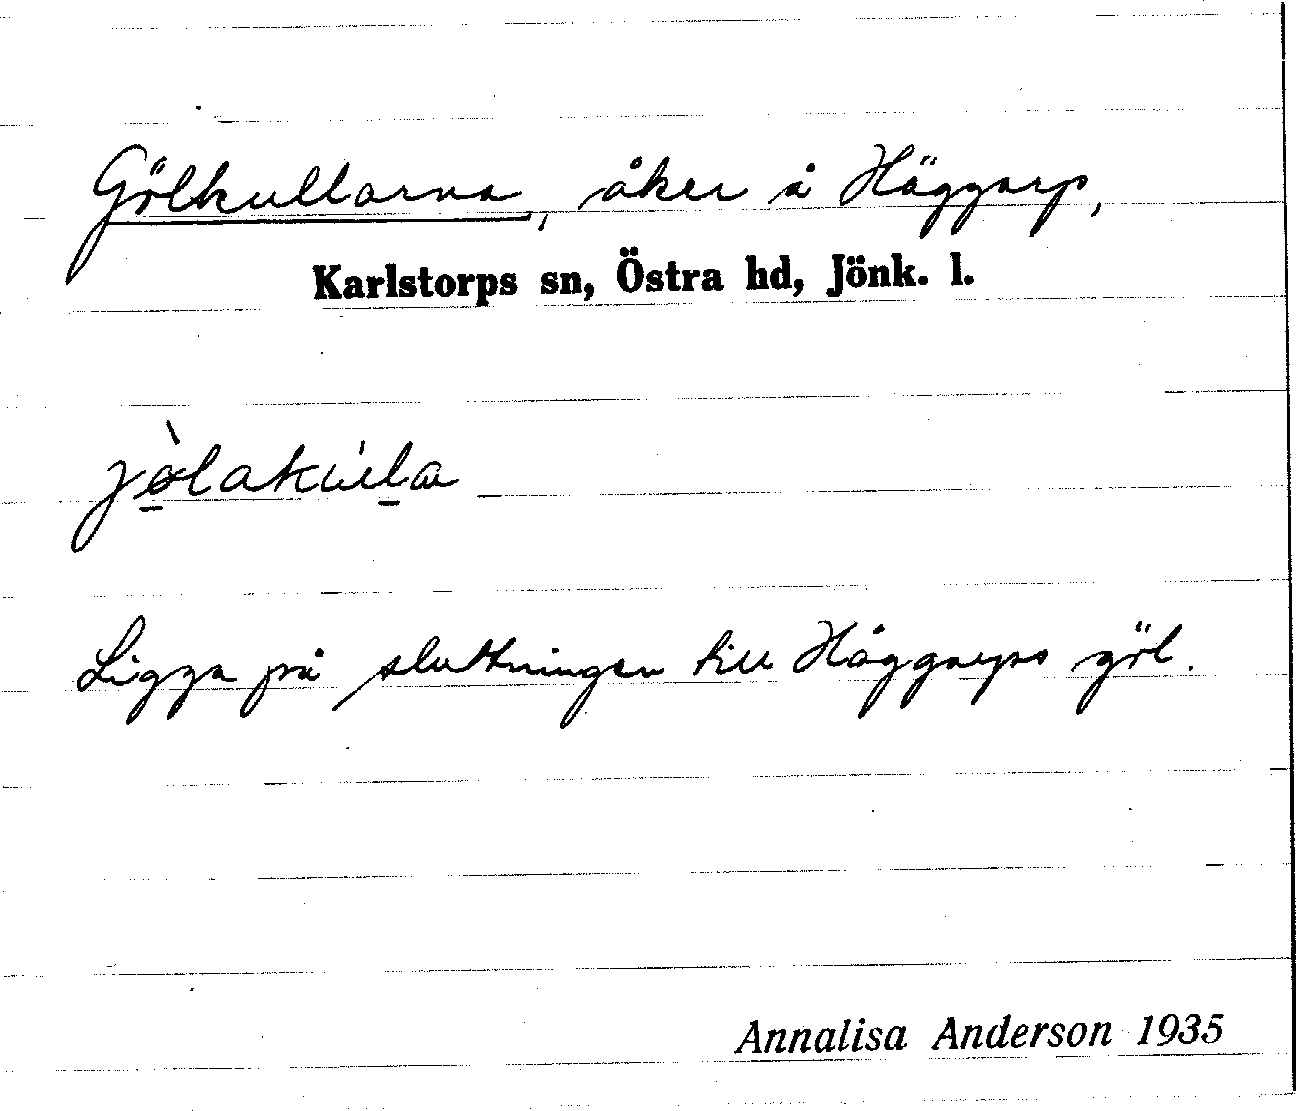 Gölkullarna, åker å Häggarp,
Karlstorps sn, Östra hd, Jönk. l.
jø̀lakùla
Ligga på sluttningen till Häggarps göl.
Annalisa Anderson 1935